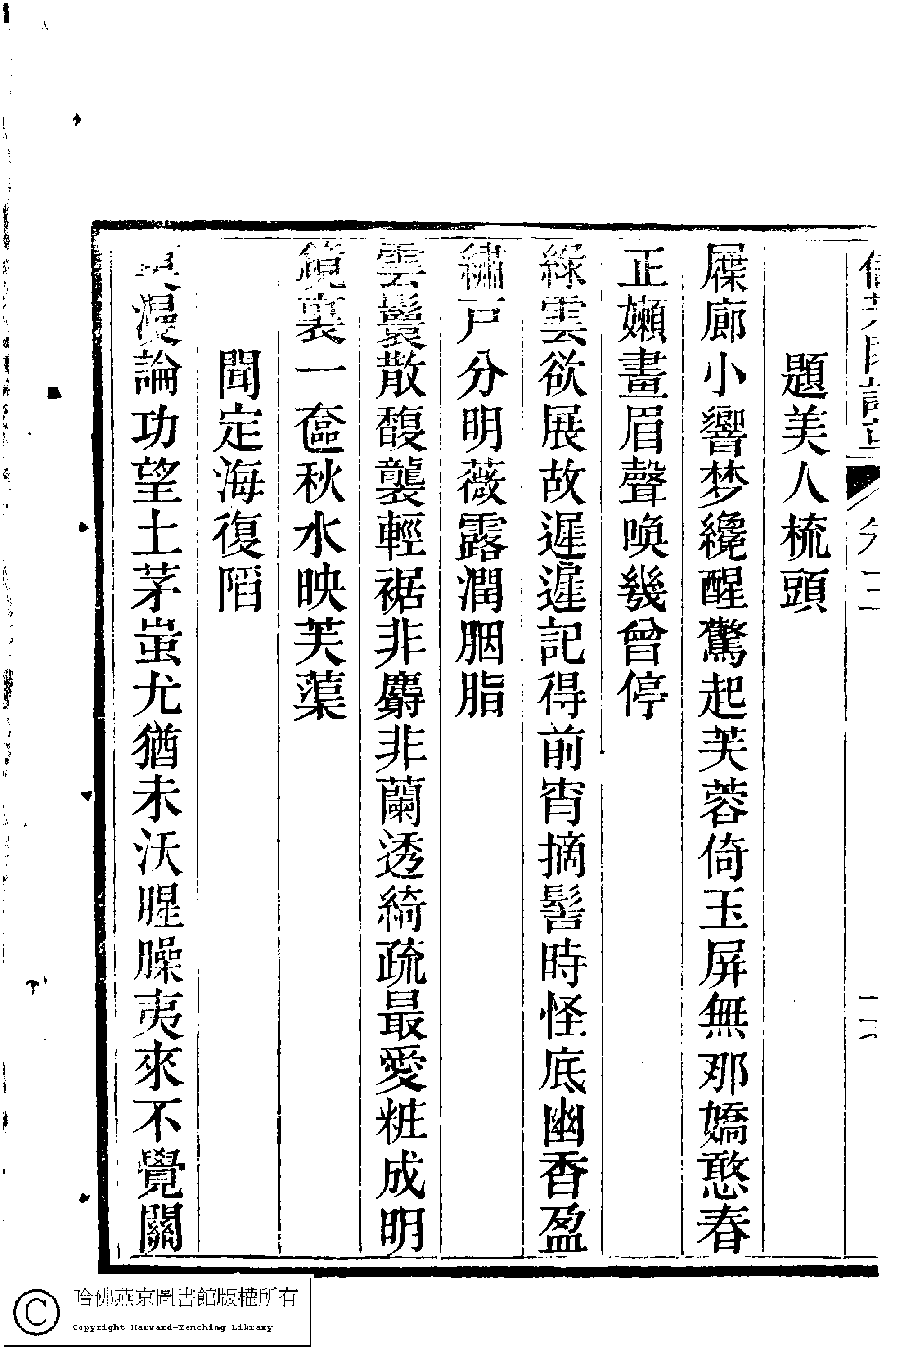 題美人梳頭
屧廊小響梦纔醒驚起芙蓉倚玉屏無那嬌憨春
正嬾畫眉聲喚幾曾停
綠雲欲展故遲遲記得前宵摘髻時怪底幽香盈
繡戸分明薇露潤胭脂
雲鬟散馥襲輕裾非麝非蘭透綺疏最愛粧成明
鏡裏一奩秋水映芙蕖
聞定海復陷
漫論功望土茅蚩尤猶未沃腥臊夷來不覺關
哈佛燕京圖書館版權所有
Copyright Harvard-Yenching Library